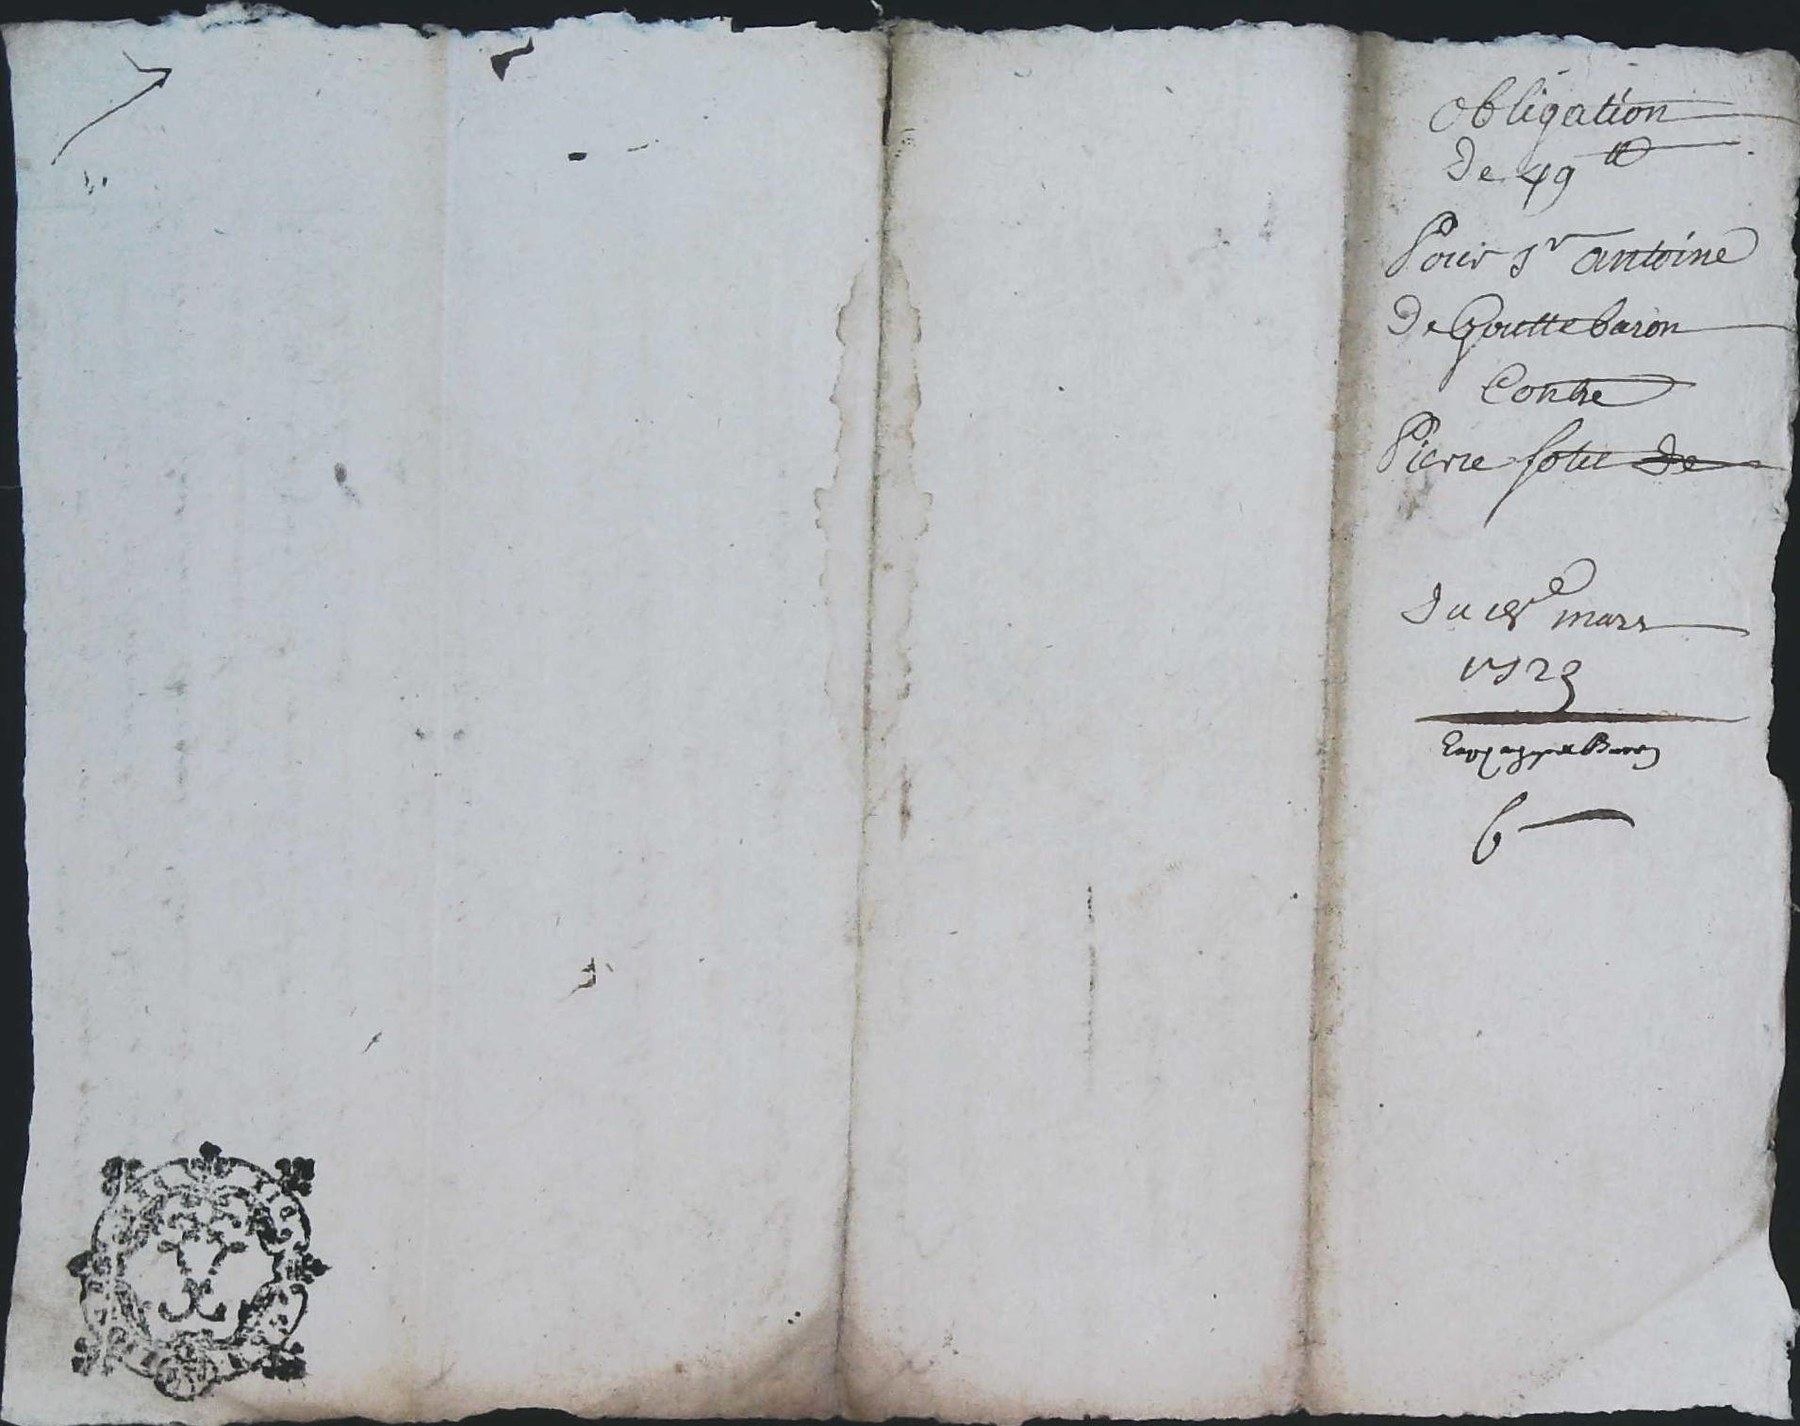 Obligation
De 49 ₶
Pour Sr antoine
De Gouttebaron
Contre
Pierre De
Du mars
1723
6